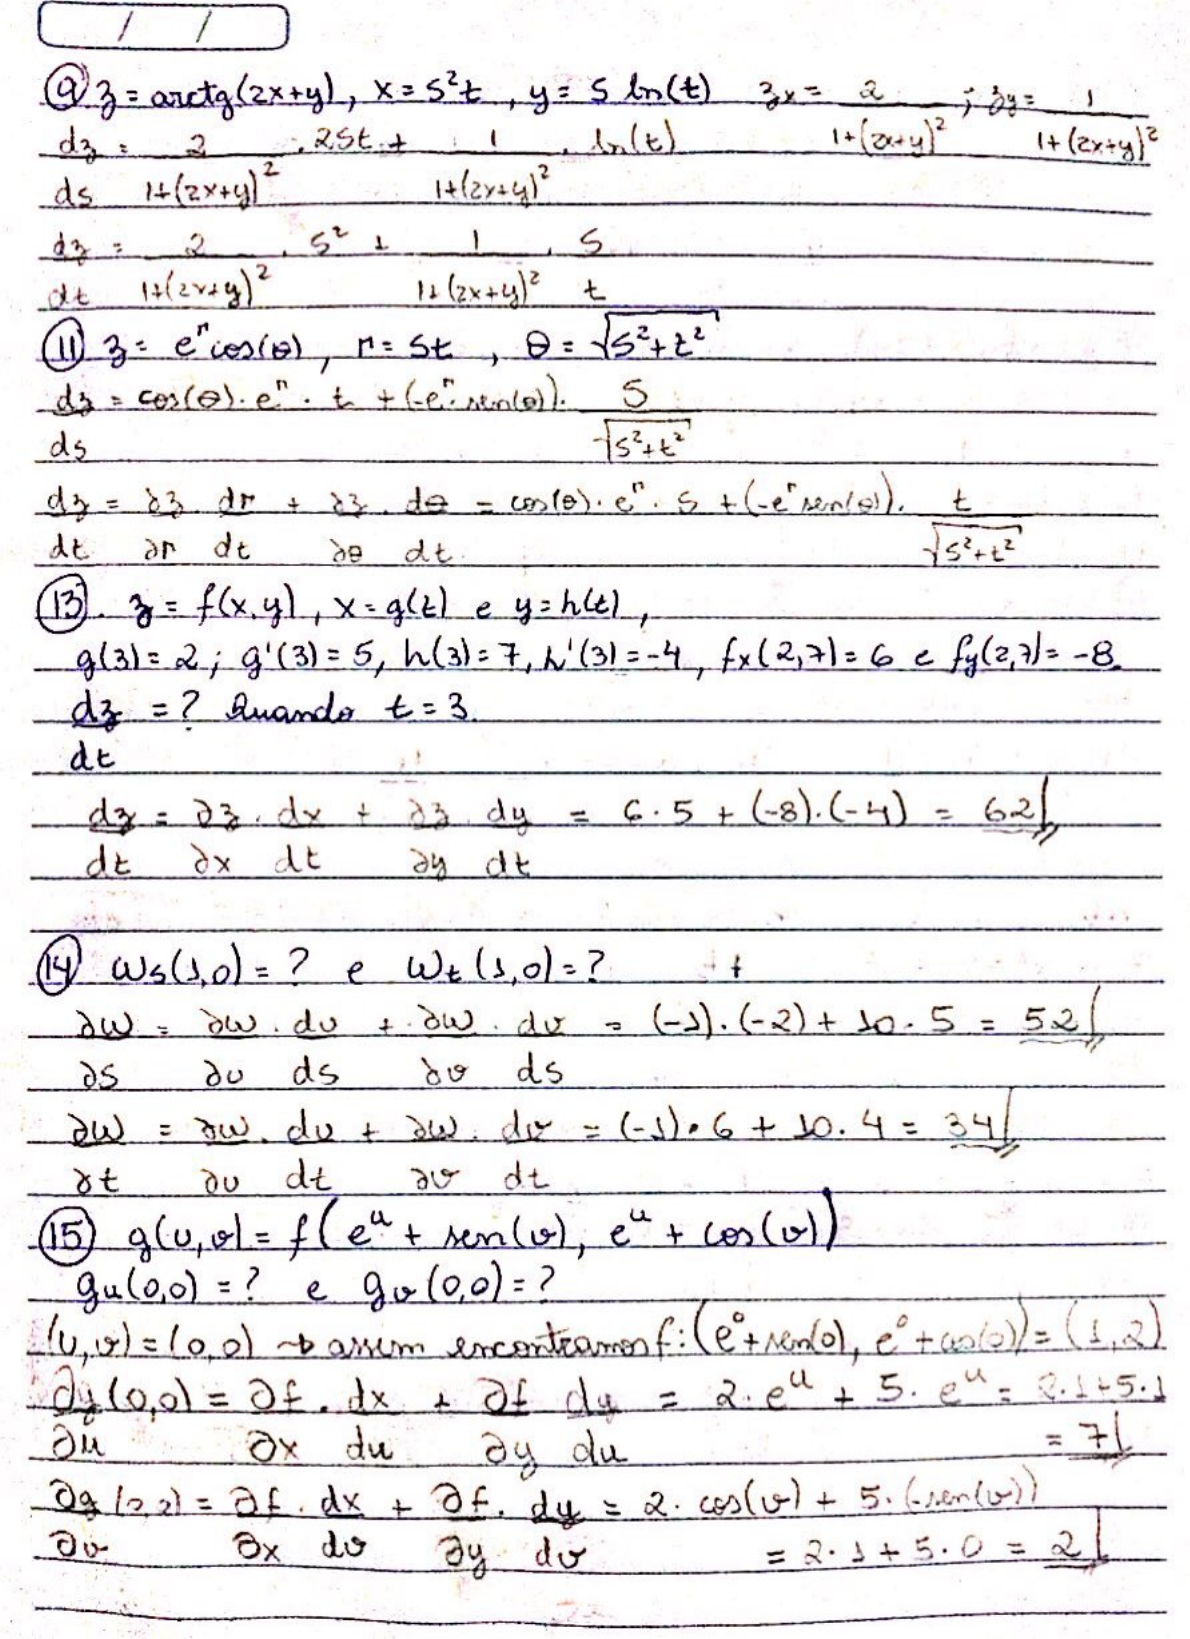 / /
⑨ z = arctg(2x+y), x = s²t, y = s ln(t) zx = 2/(1+(2x+y)²) ; zy = 1/(1+(2x+y)²)
dz/ds = 2/(1+(2x+y)²) . 2st + 1/(1+(2x+y)²) . ln(t)
dz/dt = 2/(1+(2x+y)²) . s² + 1/(1+(2x+y)²) . s/t
⑪ z = e^r cos(θ), r = st, θ = √(s²+t²)
dz/ds = cos(θ) . e^r . t + (-e^r . sen(θ)) . s/√(s²+t²)
dz/dt = ∂z/∂r . dr/dt + ∂z/∂θ . dθ/dt = cos(θ) . e^r . s + (-e^r sen(θ)) . t/√(s²+t²)
⑬. z = f(x,y), x = g(t) e y = h(t),
g(3) = 2; g'(3) = 5, h(3) = 7, h'(3) = -4, fx(2,7) = 6 e fy(2,7) = -8.
dz/dt = ? Quando t = 3.
dz/dt = ∂z/∂x . dx/dt + ∂z/∂y . dy/dt = 6 . 5 + (-8) . (-4) = 62
⑭ ws(1,0) = ? e wt(1,0) = ?
∂w/∂s = ∂w/∂u . du/ds + ∂w/∂v . dv/ds = (-1) . (-2) + 10 . 5 = 52
∂w/∂t = ∂w/∂u . du/dt + ∂w/∂v . dv/dt = (-1) . 6 + 10 . 4 = 34
⑮ g(u,v) = f(e^u + sen(v), e^u + cos(v))
gu(0,0) = ? e gv(0,0) = ?
(u,v) = (0,0) → assim encontramos f: (e⁰ + sen(0), e⁰ + cos(0)) = (1,2)
∂g/∂u (0,0) = ∂f/∂x . dx/du + ∂f/∂y dy/du = 2 . e^u + 5 . e^u = 2.1+5.1
= 7
∂g/∂v (2,2) = ∂f/∂x . dx/dv + ∂f/∂y . dy/dv = 2 . cos(v) + 5 . (-sen(v))
= 2 . 1 + 5 . 0 = 2